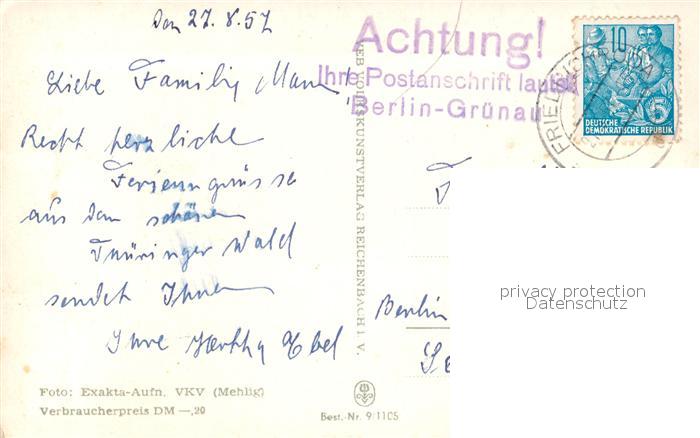 Den 27. 8. 57
Liebe Familie Mann!
Recht herzliche
Feriengrüsse
aus dem schönen
Thüringer Wald
sendet Ihnen
Ihre Hertha Ebel
Foto: Exakta-Aufn. VKV (Mehlig)
Verbraucherpreis DM —,20
Best.-Nr. 9/1105
VEB VOLKSKUNSTVERLAG REICHENBACH I. V.
Achtung!
Ihre Postanschrift lautet
Berlin-Grünau
10
5
DEUTSCHE
DEMOKRATISCHE REPUBLIK
Berlin
privacy protection
Datenschutz